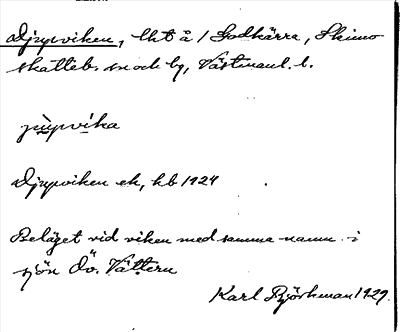 Djupviken, lht å 1 Godkärra, Skinn-
skattebs sn och bg, Västmanl. l.
jùpvìka
Djupviken ek, hb 1924
Beläget vid viken med samma namn i
sjön Öv. Vättern
Karl Björkman 1929.